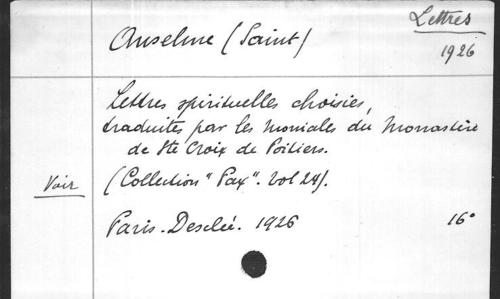 Lettres
1926
Anselme (Saint)
Lettres spirituelles choisies,
traduites par les moniales du Monastère
de Ste Croix de Poitiers.
Voir
(Collection "Pax". Vol 24).
Paris. Desclée. 1926
16°